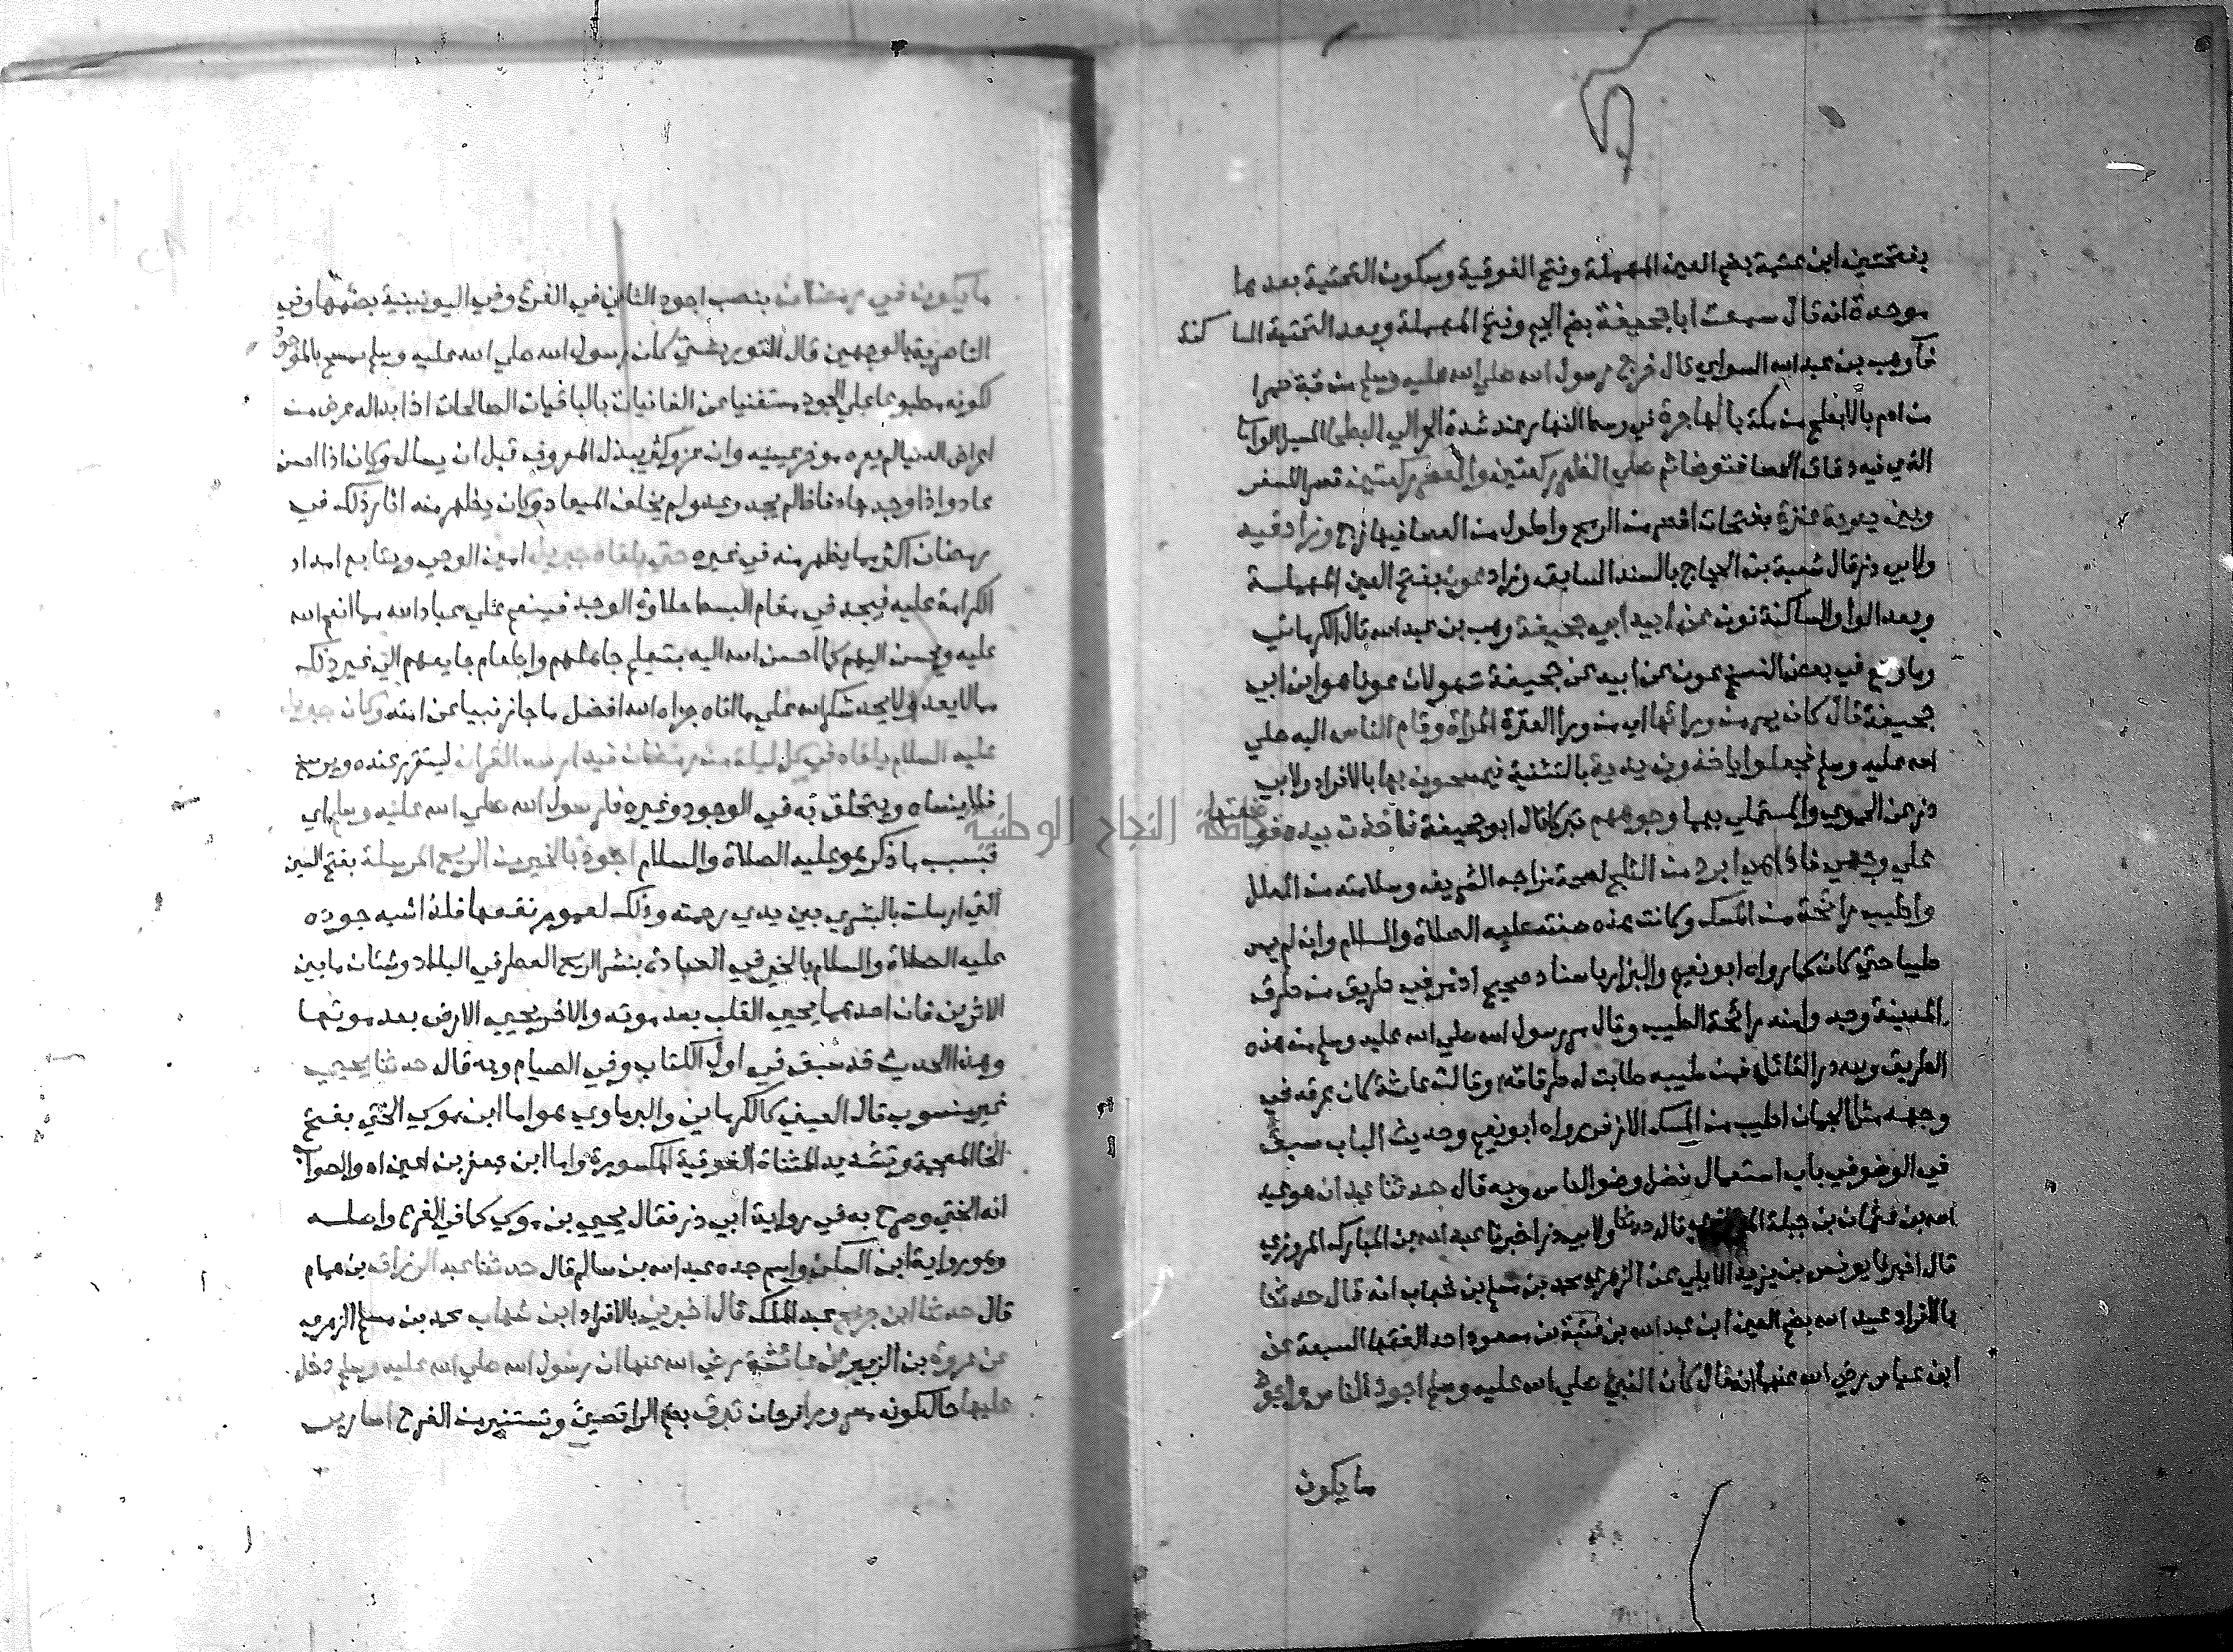 بفتحتين ابن عتيبة بضم العين المهملة وفتح الفوقية وسكون التحتية بعدها
موحدة انه قال سمعت ابا جحيفة بضم الجيم وفتح المهملة وبعد التحتية الساكنة
فا وهب بن عبد الله السواي قال خرج رسول الله صلي الله عليه وسلم من قبة حمرا
من ادم بالابطح من مكة بالهاجرة في وسط النهار عند شدة الحر الي البطحا المسيل الواسع
الذي فيه دقاق الحصا فتوضا ثم صلي الظهر ركعتين والعصر ركعتين قصرا للسفر
وبين يديه عنزة بفتحات اقصر من الرمح واطول من العصا فيها زج وزاد فيه
ولابي ذر قال شعبة بن الحجاج بالسند السابق وزاد عون بفتح العين المهملة
وبعد الواو الساكنة نون عن ابيه ابي جحيفة وهب بن عبد الله قال الكرماني
وما وقع في بعض النسخ عون عن ابيه عن جحيفة سهو لان عونا هو ابن ابي
جحيفة قال كان يمر من ورائها اي من ورا العنزة المراة وقام الناس اليه صلي
الله عليه وسلم فجعلوا ياخذون يديه بالتثنية فيمسحون بها بالافراد ولابي
ذر عن الحموي والمستملي بهما وجوههم تبركا قال ابو جحيفة فاخذت بيده فوضعتها
علي وجهي فاذا هي ابرد من الثلج لصحة مزاجه الشريف وسلامته من العلل
واطيب رائحة من المسك وكانت هذه صفته عليه الصلاة والسلام وان لم يمس
طيبا حتي كان كما رواه ابو نعيم والبزار باسناد صحيح اذا مر في طريق من طرق
المدينة وجدوا منه رائحة الطيب وقال مر رسول الله صلي الله عليه وسلم من هذه
الطريق ولله در القائل فمن طيبه طابت له طرقاته وقالت عائشة كان عرقه في
وجهه مثل الجمان اطيب من المسك الاذفر رواه ابو نعيم وحديث الباب سبق
في الوضو في باب استعمال فضل وضو الناس وبه قال حدثنا عبدان هو عبد
الله بن عثمان بن جبلة قال حدثنا ولابي ذر اخبرنا عبد الله بن المبارك المروزي
قال اخبرنا يونس بن يزيد الايلي عن الزهري محمد بن مسلم بن شهاب انه قال حدثنا
بالافراد عبيد الله بضم العين ابن عبد الله بن عتبة بن مسعود احد الفقها السبعة عن
ابن عباس رضي الله عنهما انه قال كان النبي صلي الله عليه وسلم اجود الناس واجود
ما يكون
ما يكون في رمضان بنصب اجود الثاني في الفرع وفي اليونينية بضمها وفي
الناصرية بالوجهين قال التوربشتي كان رسول الله صلي الله عليه وسلم يسمح بالموجود
لكونه مطبوعا علي الجود مستغنيا عن الفانيات بالباقيات الصالحات اذا بدا له عرض من
اعراض الدنيا لم يعره موخر عينيه وان عز وكثر يبذل المعروف قبل ان يسال وكان اذا احسن
عاد واذا وجد جاد فاذا لم يجد وعد ولم يخلف الميعاد وكان يظهر منه اثار ذلك في
رمضان اكثر مما يظهر منه في غيره حتي يلقاه جبريل امين الوحي ويتابع امداد
الكرامة عليه فيجد في مقام البسط حلاوة الوجد فينعم علي عباد الله مما انعم الله
عليه ويحسن اليهم كما احسن الله اليه بتعليم جاهلهم واطعام جايعهم الي غير ذلك
مما لا يعد ولا يحد شكرا لله علي ما اتاه جزاه الله افضل ما جاز نبيا عن امته وكان جبريل
عليه السلام يلقاه في كل ليلة من رمضان فيدارسه القران ليتقرر عنده ويرسخ
فلا ينساه ويتخلق به في الوجود وغيره فلرسول الله صلي الله عليه وسلم اي
فبسبب ما ذكر هو عليه الصلاة والسلام اجود بالخير من الريح المرسلة بفتح السين
التي ارسلت بالبشري بين يدي رحمته وذلك لعموم نفعها فلذا اشبه جوده
عليه الصلاة والسلام بالخير في العباد بنشر الريح العطر في البلاد وشتان ما بين
الاثرين فان احدهما يحيي القلب بعد موته والاخر يحيي الارض بعد موتها
وهذا الحديث قد سبق في اول الكتاب وفي الصيام وبه قال حدثنا يحيي
غير منسوب قال العيني كالكرماني والبرماوي هو اما ابن موسي الختي بفتح
الخا المعجمة وتشديد المثناة الفوقية المكسورة واما ابن جعفر بن اعين اه والصواب
انه الختي وصرح به في رواية ابي ذر فقال يحيي بن موسي كما في الفرع واصله
وهو رواية ابن السكن واسم جده عبد الله بن سالم قال حدثنا عبد الرزاق بن همام
قال حدثنا ابن جريج عبد الملك قال اخبرني بالافراد ابن شهاب محمد بن مسلم الزهري
عن عروة بن الزبير عن عائشة رضي الله عنها ان رسول الله صلي الله عليه وسلم دخل
عليها حال كونه مسرورا فرحان تبرق بضم الرا تضي وتستنير من الفرح اسارير
جامعة النجاح الوطنية